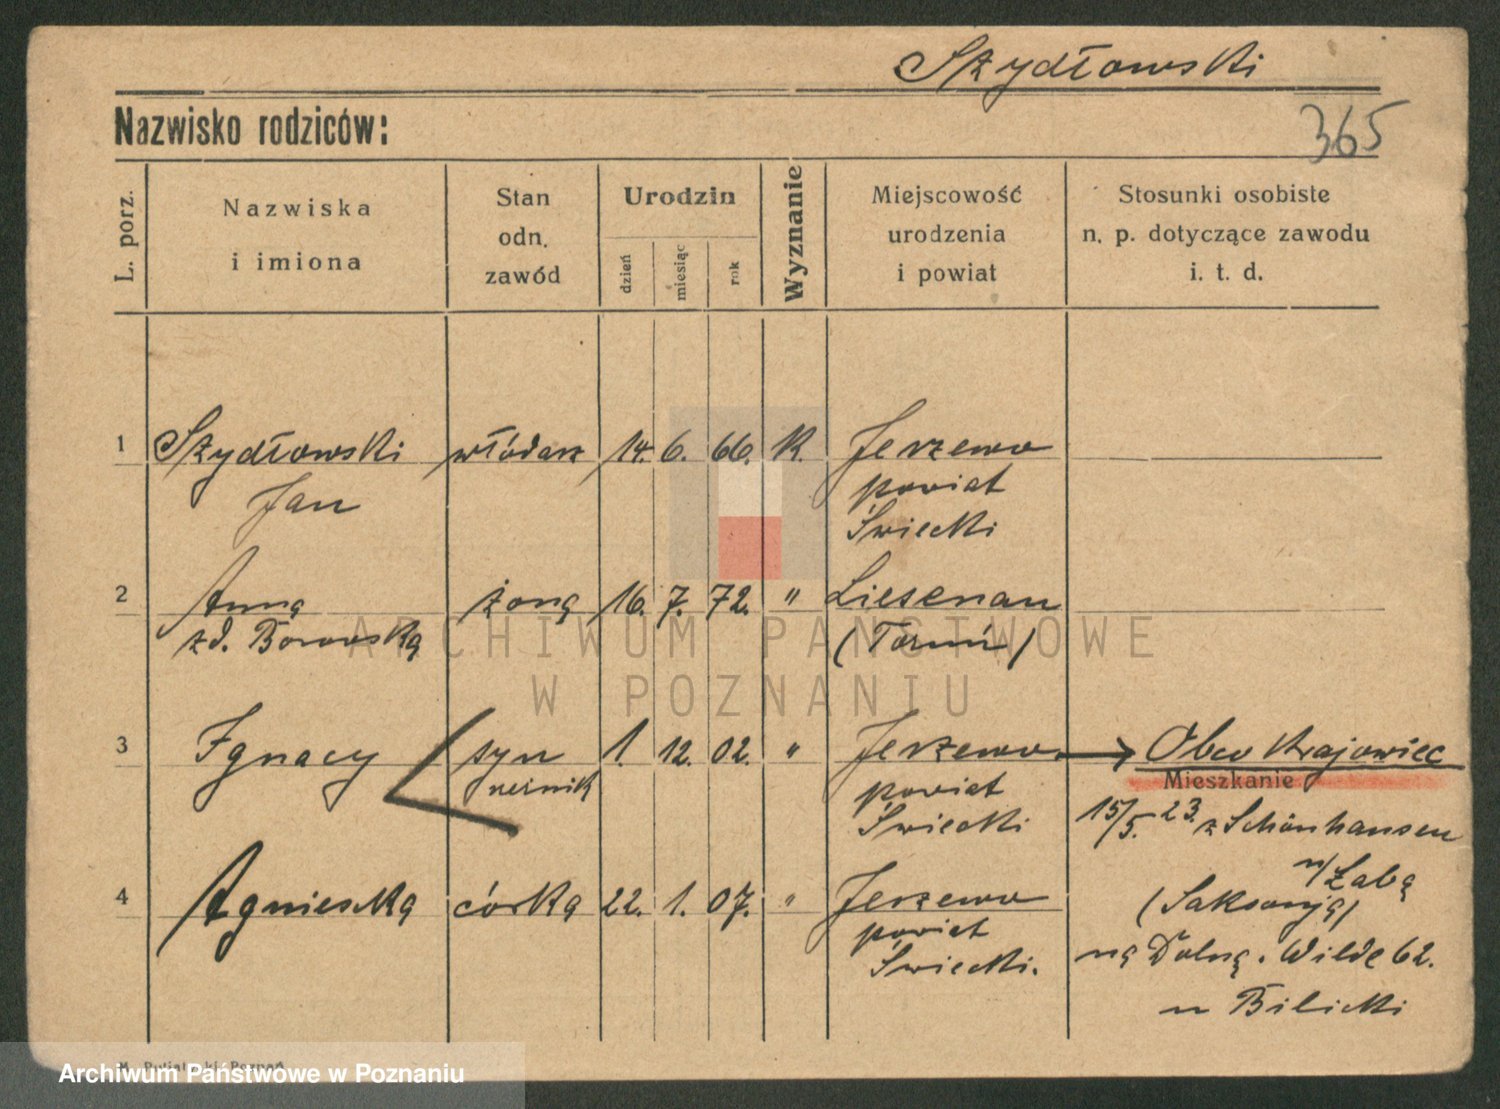 Szydłowski
365
Nazwisko rodziców:
L. porz.
Nazwiska
i imiona
Stan
odn.
zawód
Urodzin
dzień
miesiąc
rok
Wyznanie
Miejscowość
urodzenia
i powiat
Stosunki osobiste
n. p. dotyczące zawodu
i. t. d.
1 Szydłowski włódarz 14. 6. 66. K. Jerzewo
Jan powiat
Świecki
2 Anna żona 16. 7. 72. " Liesenau
zd. Borowska (Toruń)
3 Ignacy syn 1. 12. 02. " Jerzewo Obco krajowiec
Mieszkanie
powiat
Świecki
15/5. 23. z Schönhausen
n/Łabą
4 Agnieszka córka 22. 1. 07. " Jerzewo (Saksonja)
powiat
Świecki.
na Dolną. Wildę 62.
u Bilicki
ARCHIWUM PAŃSTWOWE
W POZNANIU
Archiwum Państwowe w Poznaniu